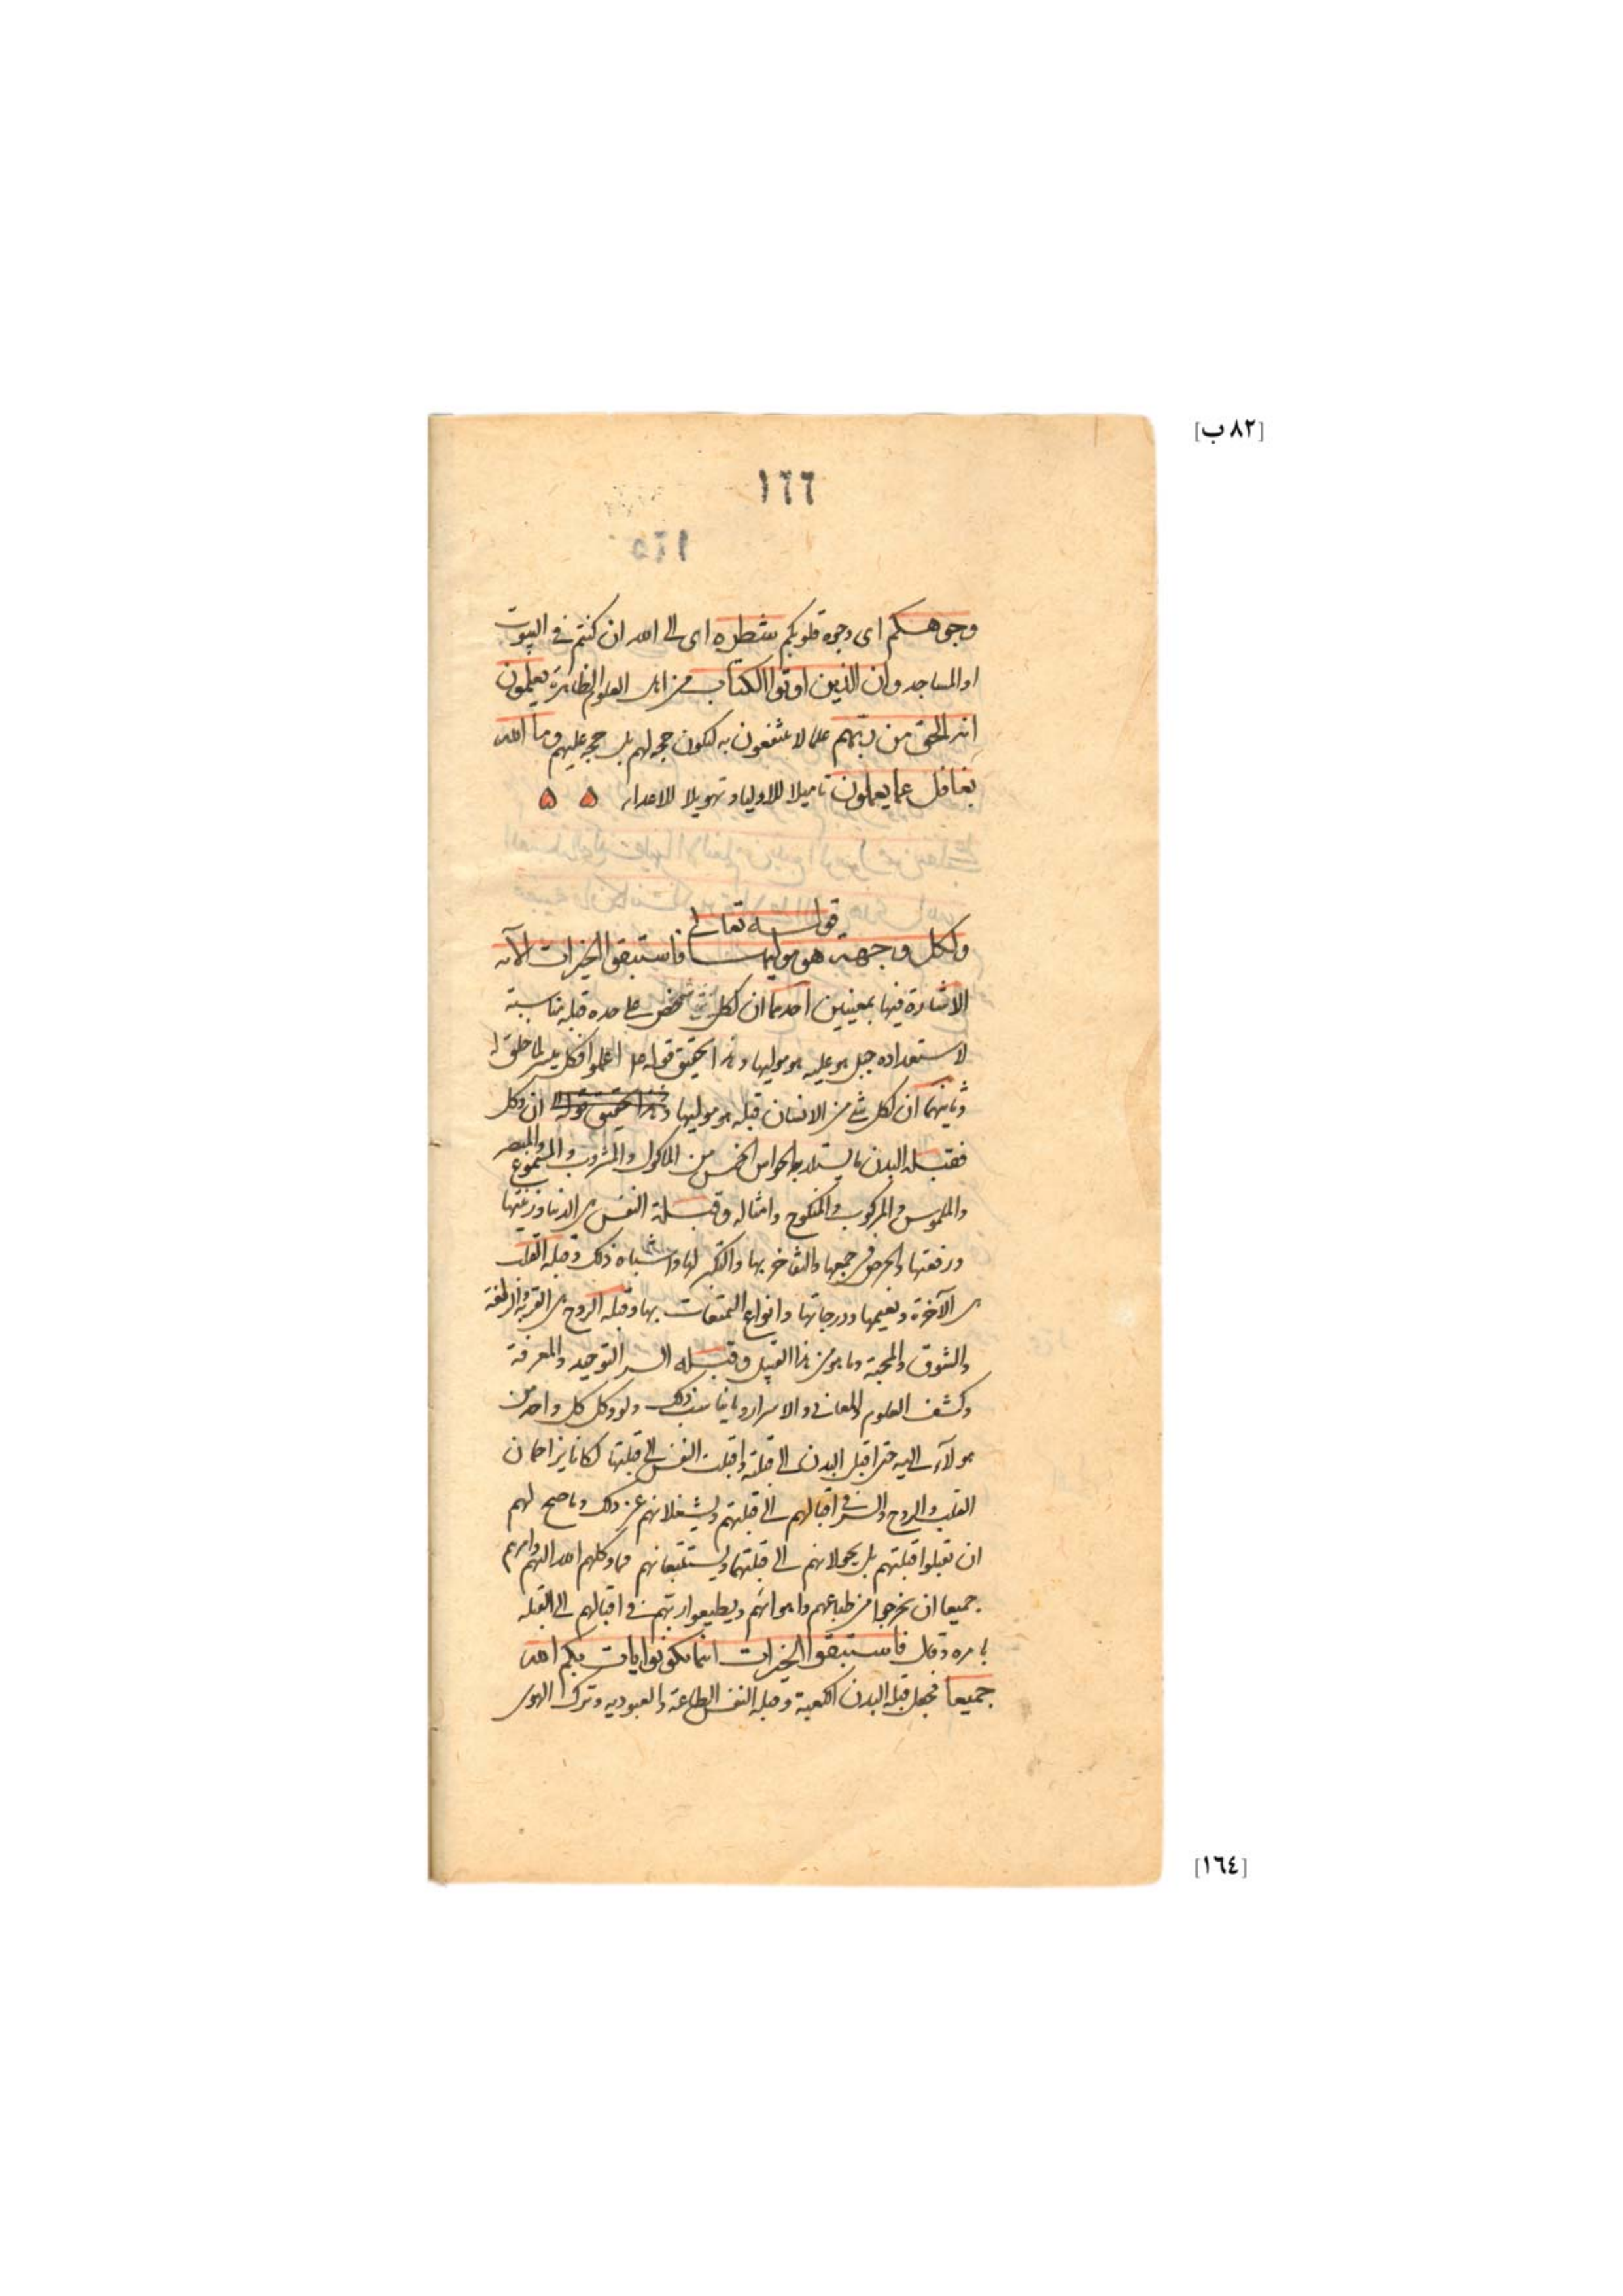 [٨٢ ب]
١٦٦
١٦٥
وجوهكم اى وجوه قلوبكم شطره اى الى الله ان كنتم فى البيوت
او المساجد وان الذين اوتوا الكتاب من اهل العلوم الظاهرة يعلمون
انه الحق من ربهم علما لا ينتفعون به لتكون حجة لهم بل حجة عليهم وما الله
بغافل عما يعملون تاميلا للاولياء وتهويلا للاعداء
قوله تعالى
ولكل وجهة هو موليها فاستبقوا الخيرات الآية
الاشارة فيها بمعنيين احدهما ان لكل شخص على حده قبلة مناسبة
لاستعداده جبل هو عليه هو موليها وهذا تحقيق قوله صلعم اعملوا فكل ميسر لما خلق له
وثانيهما ان لكل شئ من الانسان قبلة هو موليها وهذا تحقيق قوله ان وكل
فقبلة البدن ما يستلذ به الحواس الخمس من الماكول والمشروب والمسموع والمبصر
والملموس والمركوب والمنكوح وامثاله وقبلة النفس هى الدنيا وزينتها
ورفعتها والحرص فى جمعها والتفاخر بها والتكبر لها واشباه ذلك وقبلة القلب
هى الآخرة ونعيمها ودرجاتها وانواع التمتعات بها وقبلة الروح هى القربة والزلفة
والشوق والمحبة وما هو من هذا القبيل وقبلة السر التوحيد والمعرفة
وكشف العلوم والمعانى والاسرار وما يناسب ذلك ولو وكل كل واحد من
هولآء اليه حتى اقبل البدن الى قبلته واقبلت النفس الى قبلتها لكانا يزاحمان
القلب والروح والسر فى اقبالهم الى قبلتهم ويشغلانهم عن ذلك وما صح لهم
ان تقبلوا قبلتهم بل يحولانهم الى قبلتهما ويستتبعانهم فما وكلهم الله اليهم وامرهم
جميعا ان يخرجوا من طباعهم واهوائهم ويطيعوا ربهم فى اقبالهم الى القبلة
بامره وقال فاستبقوا الخيرات اينما تكونوا يات بكم الله
جميعا فجعل قبلة البدن الكعبة وقبلة النفس الطاعة والعبودية وترك الهوى
[١٦٤]